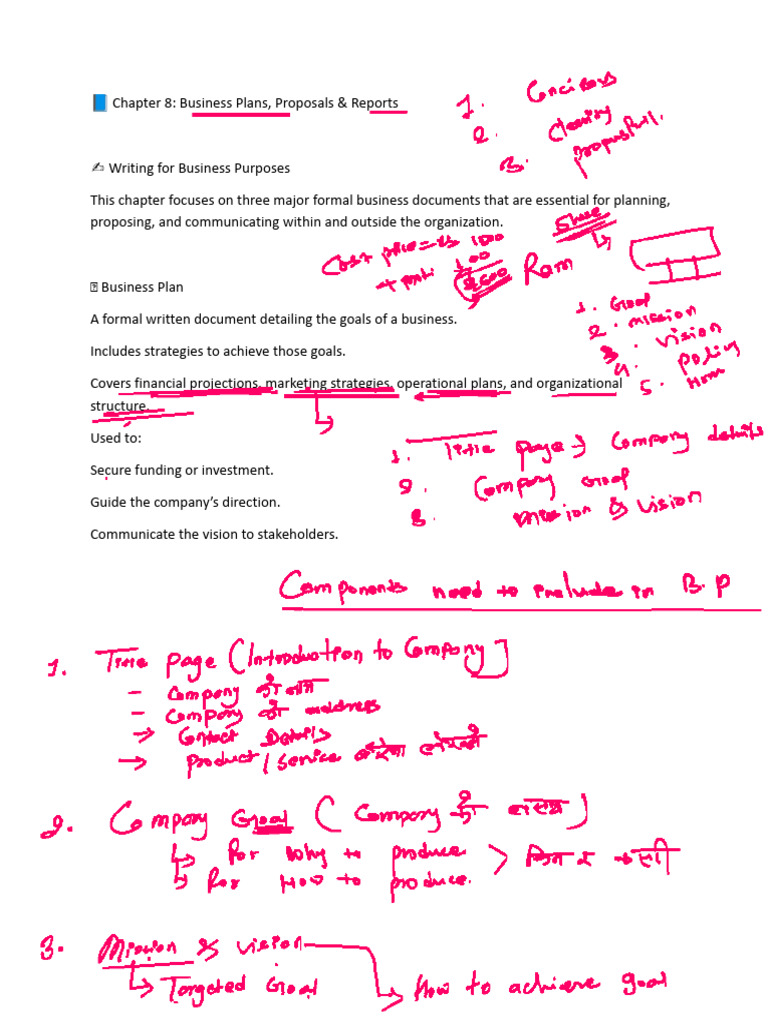 📘 Chapter 8: Business Plans, Proposals & Reports
1. Conciless
2. Clearity
3. propusfull.
✍ Writing for Business Purposes
This chapter focuses on three major formal business documents that are essential for planning,
proposing, and communicating within and outside the organization.
Share
Cost price = Rs 1000
Ram
Business Plan
1. Goal
2. mission
3. vision
4. policy
5.
A formal written document detailing the goals of a business.
Includes strategies to achieve those goals.
Covers financial projections, marketing strategies, operational plans, and organizational
structure.
Used to:
1. Title page → Company details
2. Company Goal
3. mission & vision
Secure funding or investment.
Guide the company's direction.
Communicate the vision to stakeholders.
Components need to include in B.P
1. Title page (Introduction to Company]
- Company को नाम
- Company को address
→ Contact Details
→ Product/Service
2. Company Goal ( Company को लक्ष्य )
↳ For Why to produce
↳ For How to produce.
3. Mission & vision
↳ Targeted Goal
↳ How to achieve goal